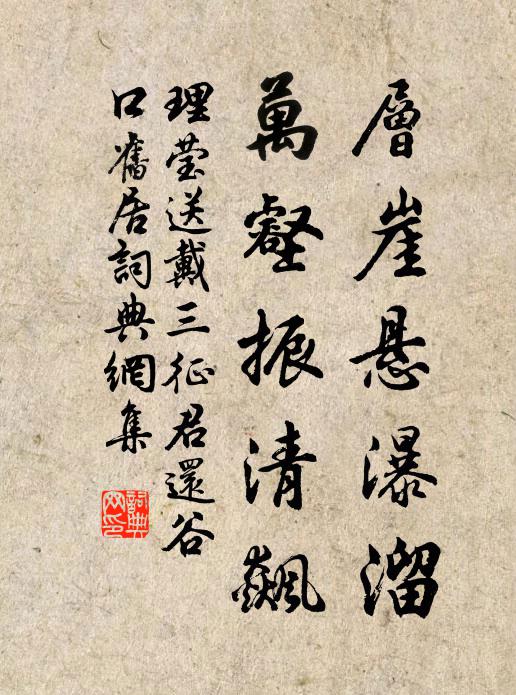 層崖悬瀑溜
萬壑振清飆
理莹送戴三征君還谷
口舊居詞典網集
詞典
网印